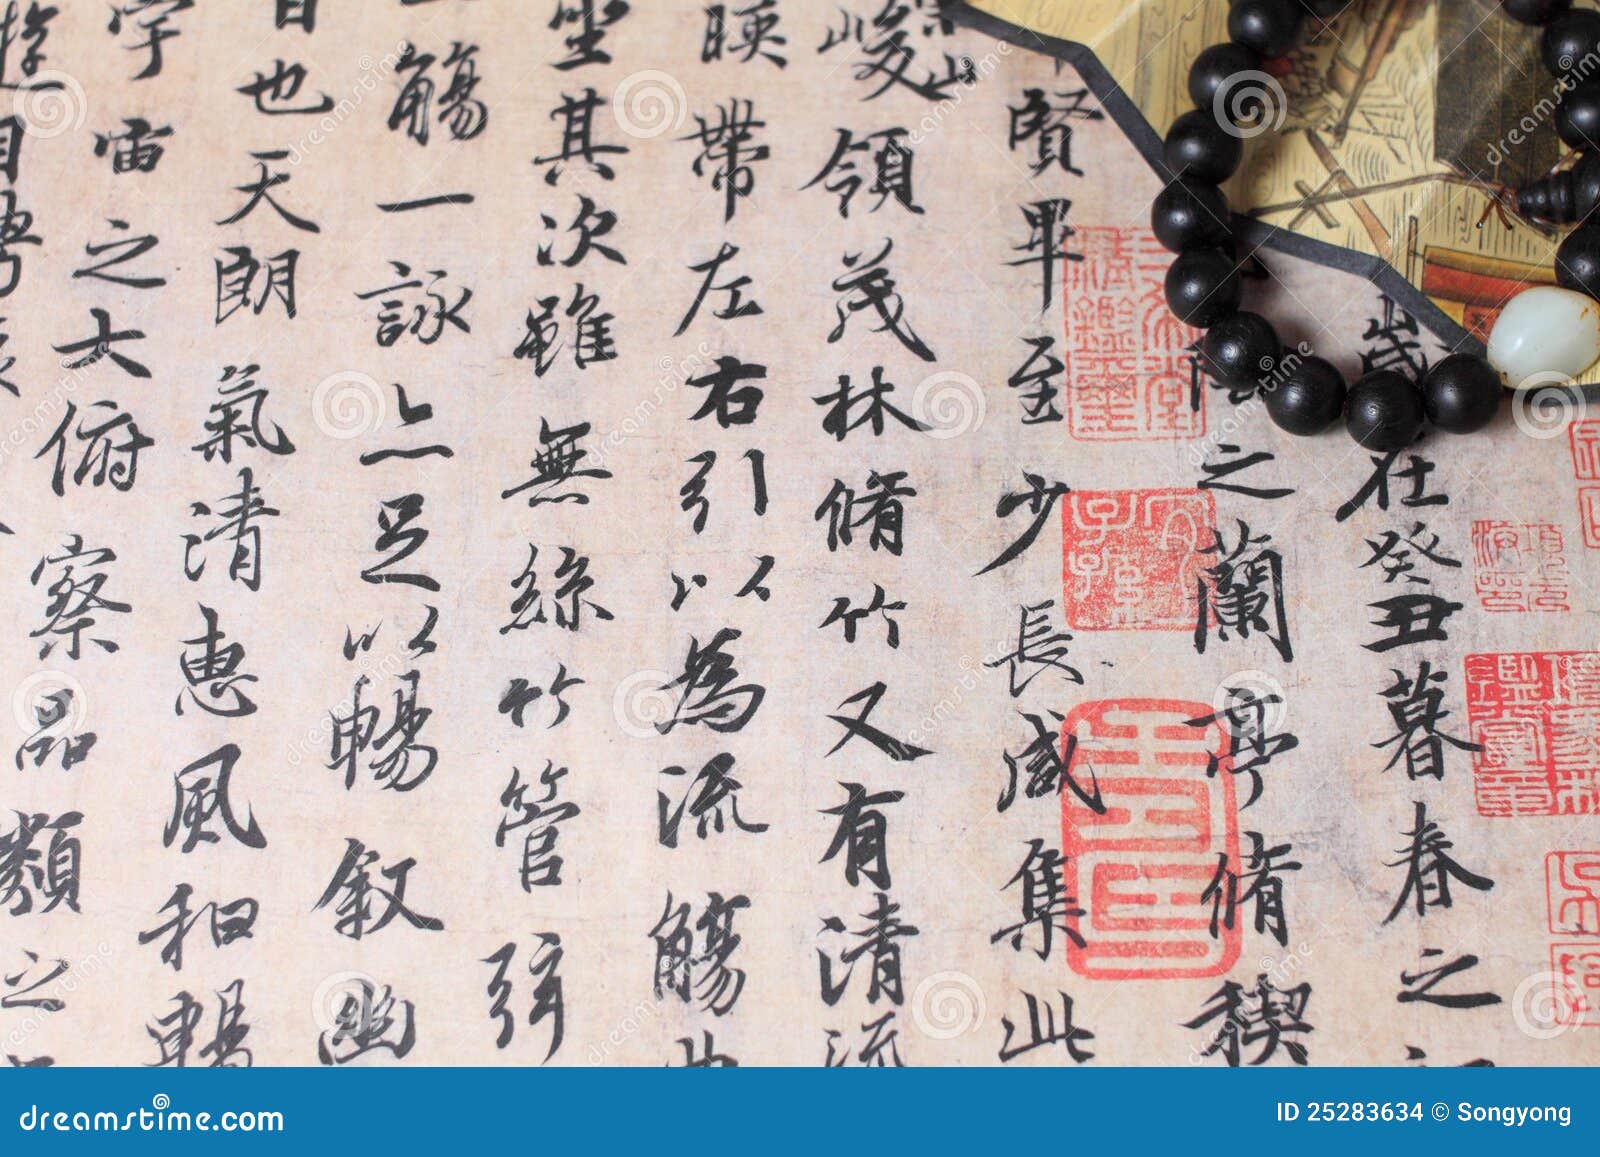 歲在癸丑暮春之
陰之蘭亭脩禊
賢畢至少長咸集此
崇山
峻領茂林脩竹又有清流
暎帶左右引以為流觴曲
坐其次雖無絲竹管弦
一觴一詠亦足以暢叙幽
日也天朗氣清惠風和暢
宇宙之大俯察品類之
遊目騁
dreamstime.com
ID 25283634 © Songyong